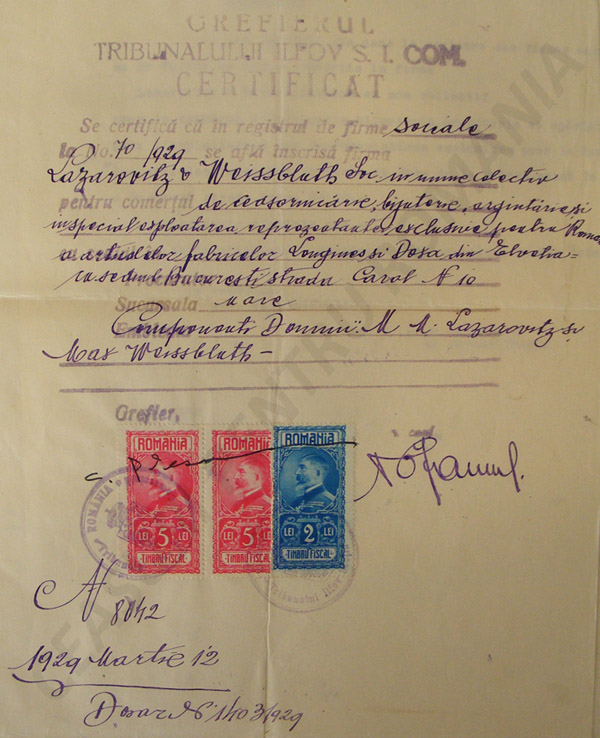 GREFIERUL
TRIBUNALULUI ILFOV S. I. COM.
CERTIFICAT
Se certifică că în registrul de firme sociale
la No. 70/929 se află înscrisă firma
Lazarovitz & Weissbluth Soc in nume colectiv
pentru comerțul de ceasornicărie, bijuterie, argintărie, si
in special exploatarea reprezentantei exclusive pentru Romania
a articolelor fabricelor Longines si Doxa din Elvetia
cu sediul Bucuresti strada Carol N 10
Sucursala n'are
Componenti Domnii: M. M. Lazarovitz si
Max Weissbluth
Grefier,
ROMANIA
LEI 5 LEI
TIMBRU FISCAL
ROMANIA
LEI 5 LEI
TIMBRU FISCAL
ROMANIA
LEI 2 LEI
TIMBRU FISCAL
ROMÂNIA
Tribunalul Ilfov
N 8042
1929 Martie 12
Dosar No 1403/929